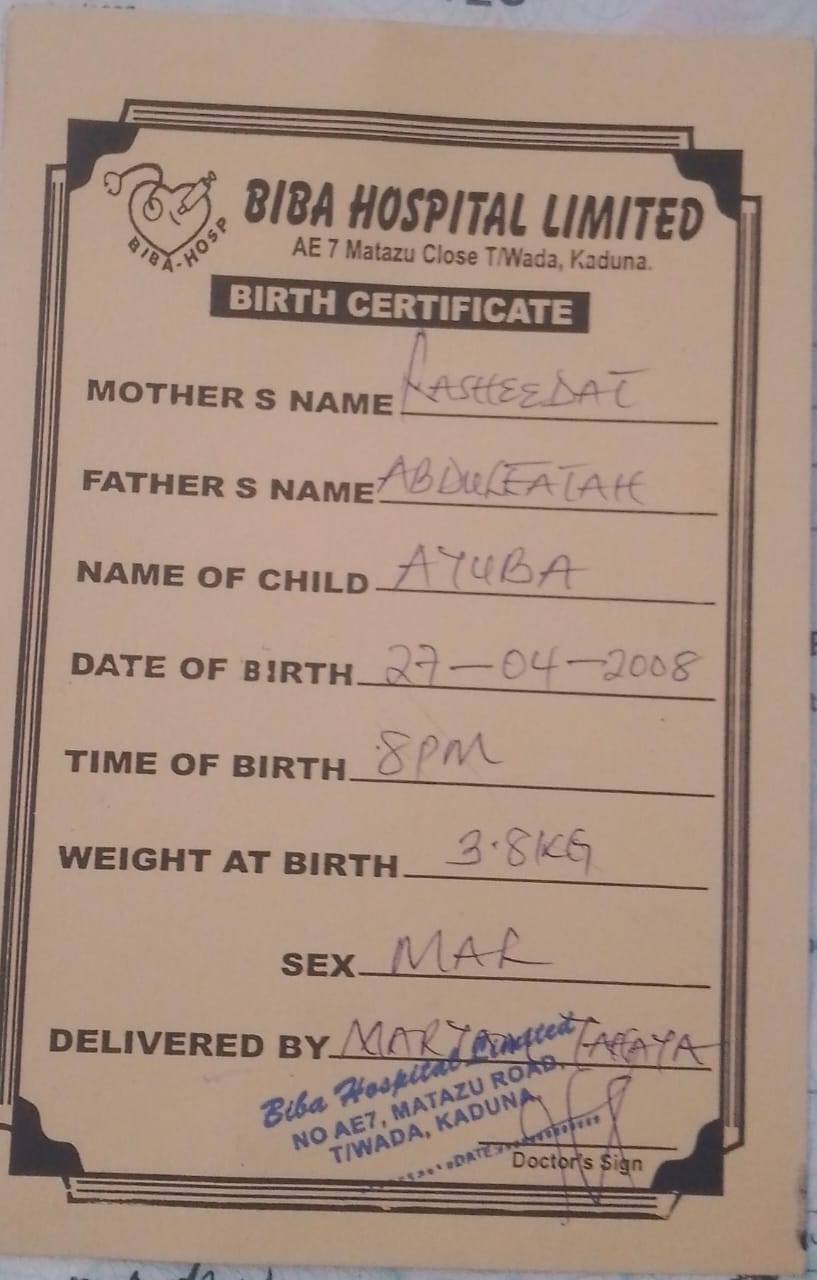 BIBA-HOSP
BIBA HOSPITAL LIMITED
AE 7 Matazu Close T/Wada, Kaduna.
BIRTH CERTIFICATE
MOTHER S NAME RASHEEDAT
FATHER S NAME ABDULFATAH
NAME OF CHILD AYUBA
DATE OF BIRTH 27-04-2008
TIME OF BIRTH 8PM
WEIGHT AT BIRTH 3.8KG
SEX
DELIVERED BY
Biba Hospital Limited
NO AE7, MATAZU ROAD,
T/WADA, KADUNA.
DATE
Doctor's Sign